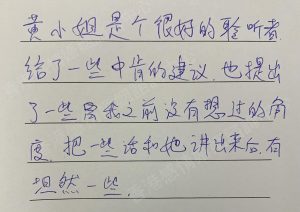 黄小姐是个很好的聆听者
给了一些中肯的建议.也提出
了一些我之前没有想过的角
度.把一些话和她讲出来后.有
坦然一些.